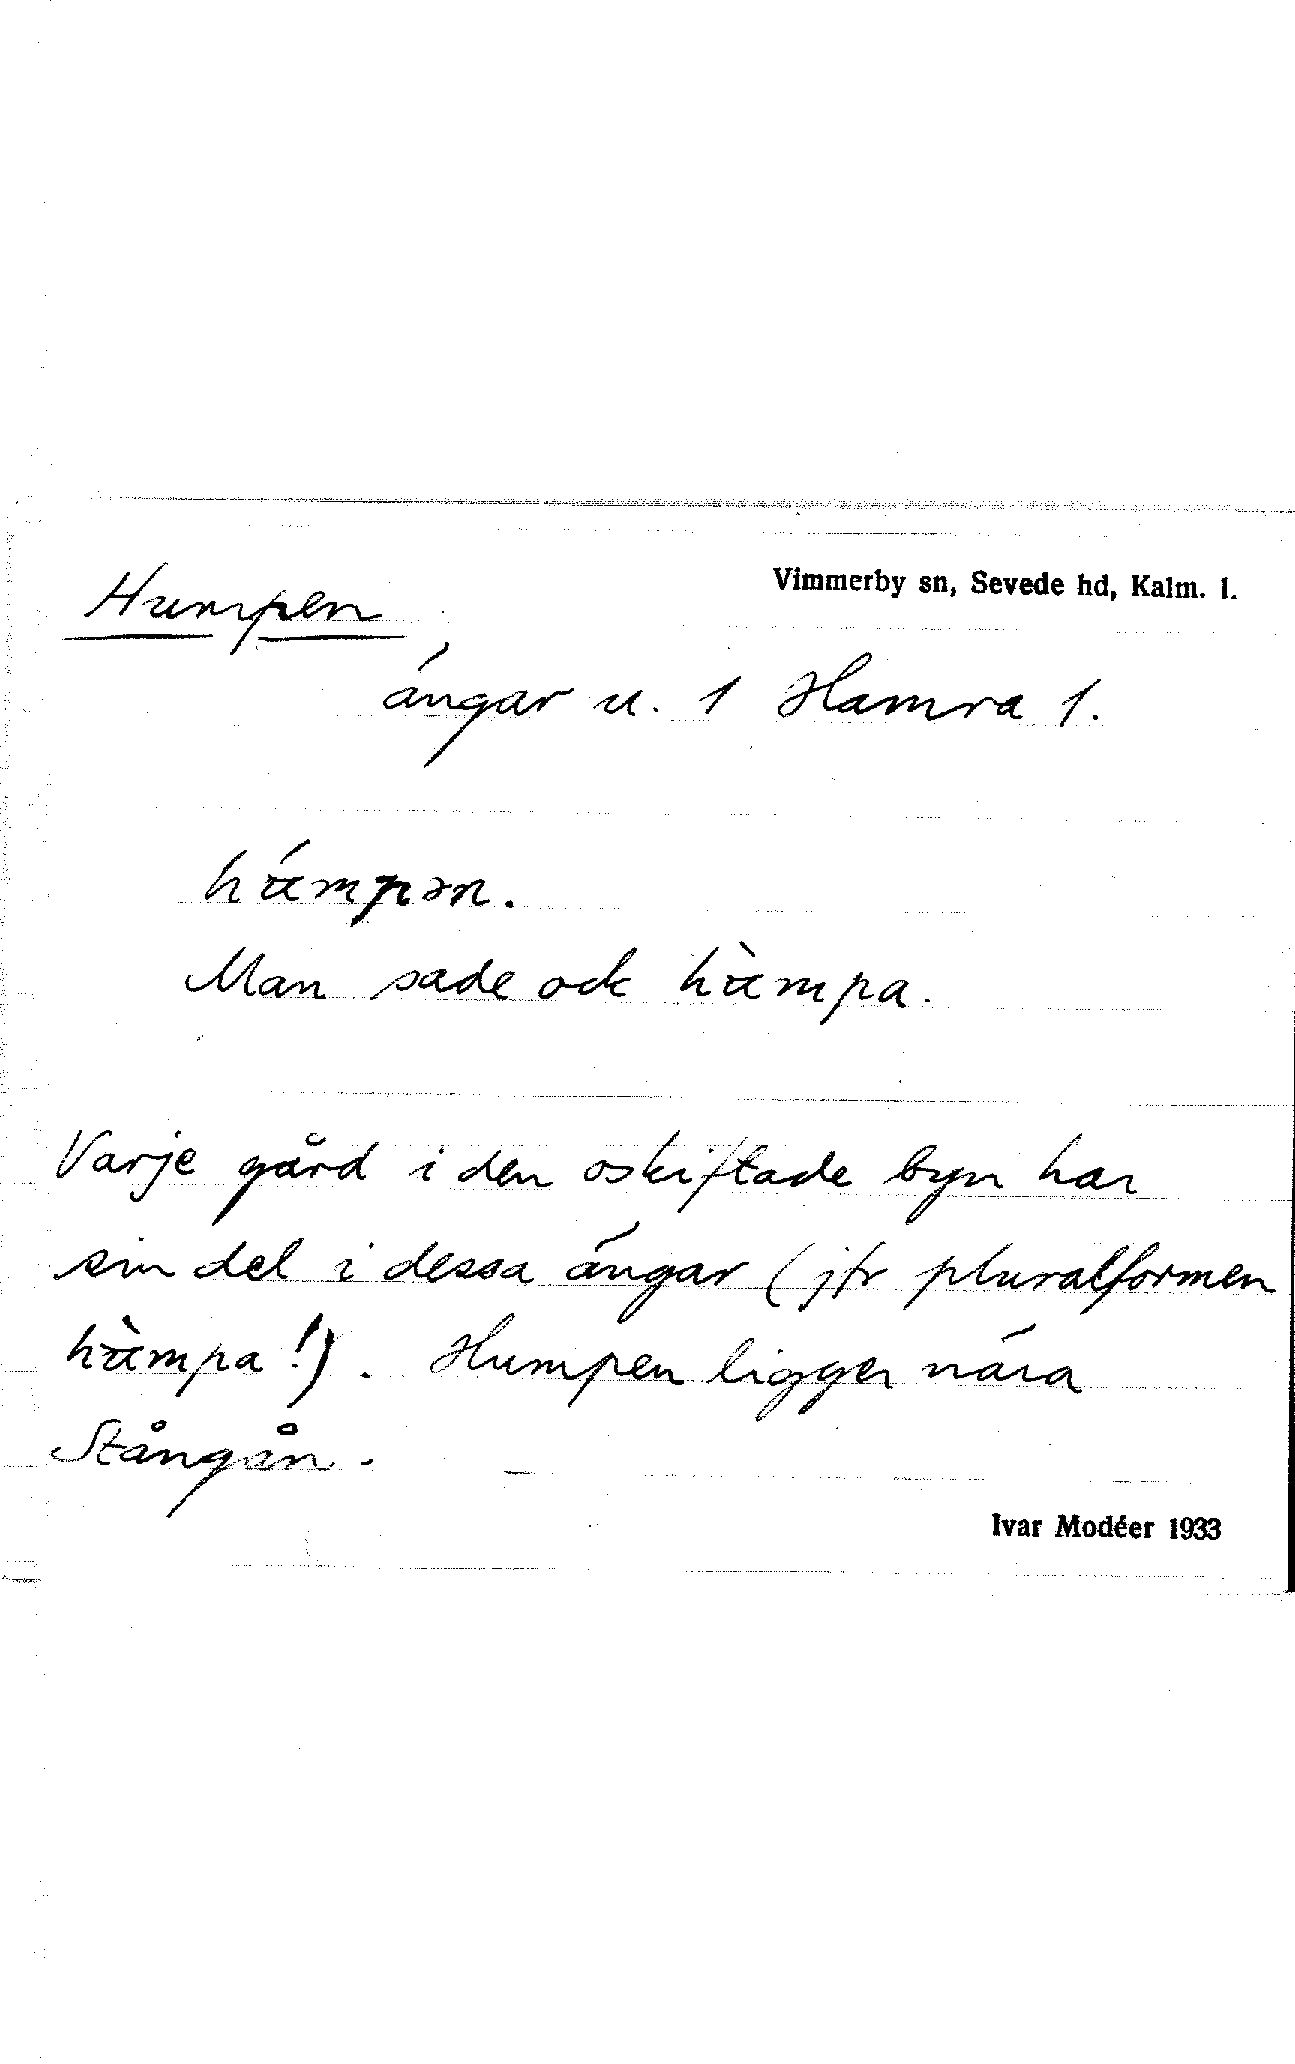 Humpen
Vimmerby sn, Sevede hd, Kalm. l.
ängar u. 1 Hamra 1.
hʉ́mpən.
Man sade ock hʉ̀mpa.
Varje gård i den oskiftade byn har
sin del i dessa ängar (jfr pluralformen
hʉ̀mpa!). Humpen ligger nära
Stångån.
Ivar Modéer 1933